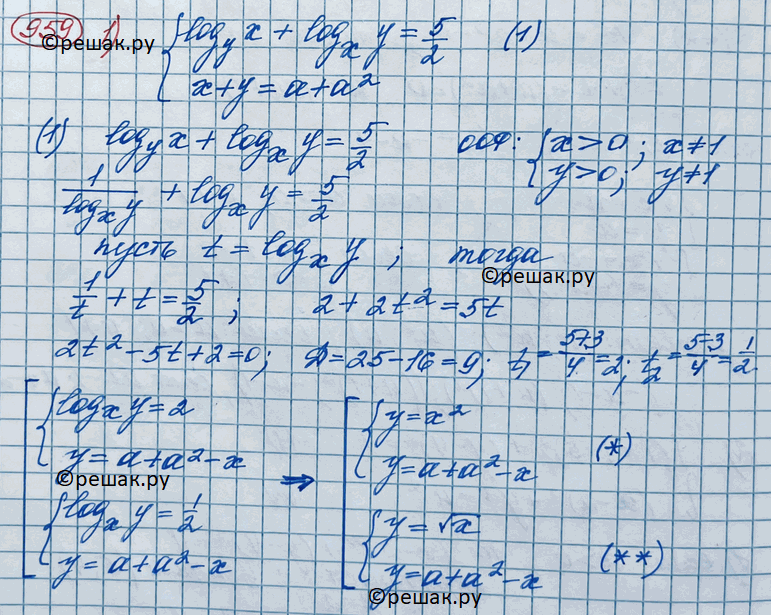 959 1) { log_y x + log_x y = 5/2 (1)
©решак.ру
x+y = a+a²
(1) log_y x + log_x y = 5/2 ООФ: { x>0; x≠1
y>0; y≠1
1/log_x y + log_x y = 5/2
пусть t = log_x y ; тогда
©решак.ру
1/t + t = 5/2 ; 2 + 2t² = 5t
2t² - 5t + 2 = 0; D = 25 - 16 = 9; t₁ = (5+3)/4 = 2; t₂ = (5-3)/4 = 1/2
[ { log_x y = 2
y = a+a²-x
©решак.ру
{ log_x y = 1/2
y = a+a²-x
⇒ [ { y = x²
y = a+a²-x (*)
{ y = √x
y = a+a²-x (**)
©решак.ру